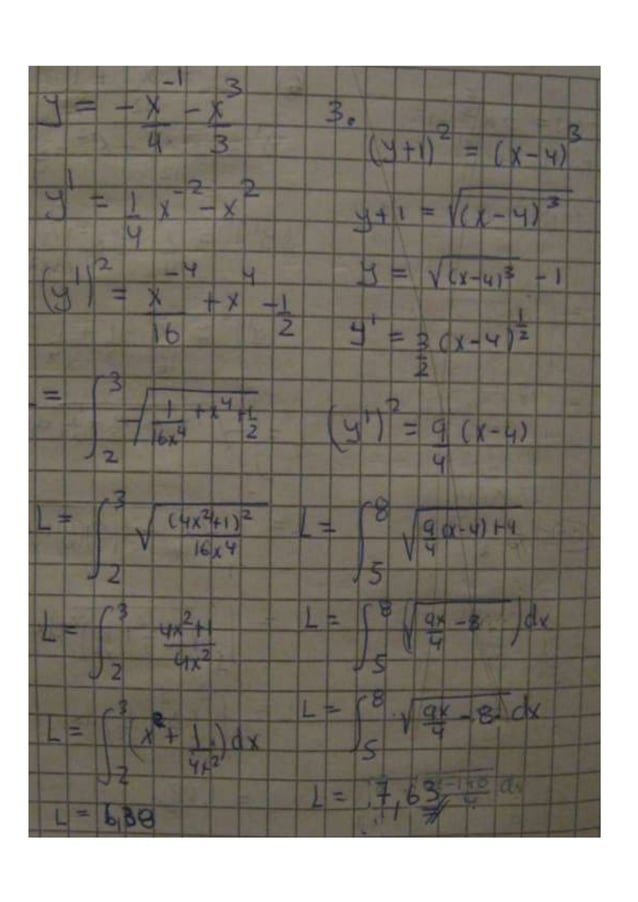 y = -x^-1/4 - x^3/3
y' = 1/4 x^-2 - x^2
(y')^2 = x^-4/16 + x^4 - 1/2
= ∫_2^3 √(1/16x^4 + x^4 + 1/2)
L = ∫_2^3 √((4x^2+1)^2/16x^4)
L = ∫_2^3 4x^2+1/4x^2
L = ∫_2^3 (x^2 + 1/4x^2) dx
L = 6,38
3.
(y+1)^2 = (x-4)^3
y+1 = √(x-4)^3
y = √(x-4)^3 - 1
y' = 3/2 (x-4)^1/2
(y')^2 = 9/4 (x-4)
L = ∫_5^8 √(9/4 (x-4) + 1)
L = ∫_5^8 √(9x/4 - 8) dx
L = ∫_5^8 √(9x/4 - 8) dx
L = 7,63